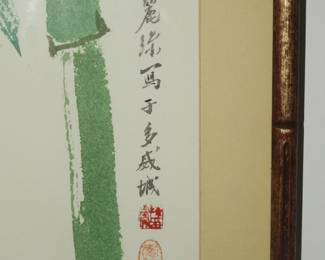 麗涤寫于多威城